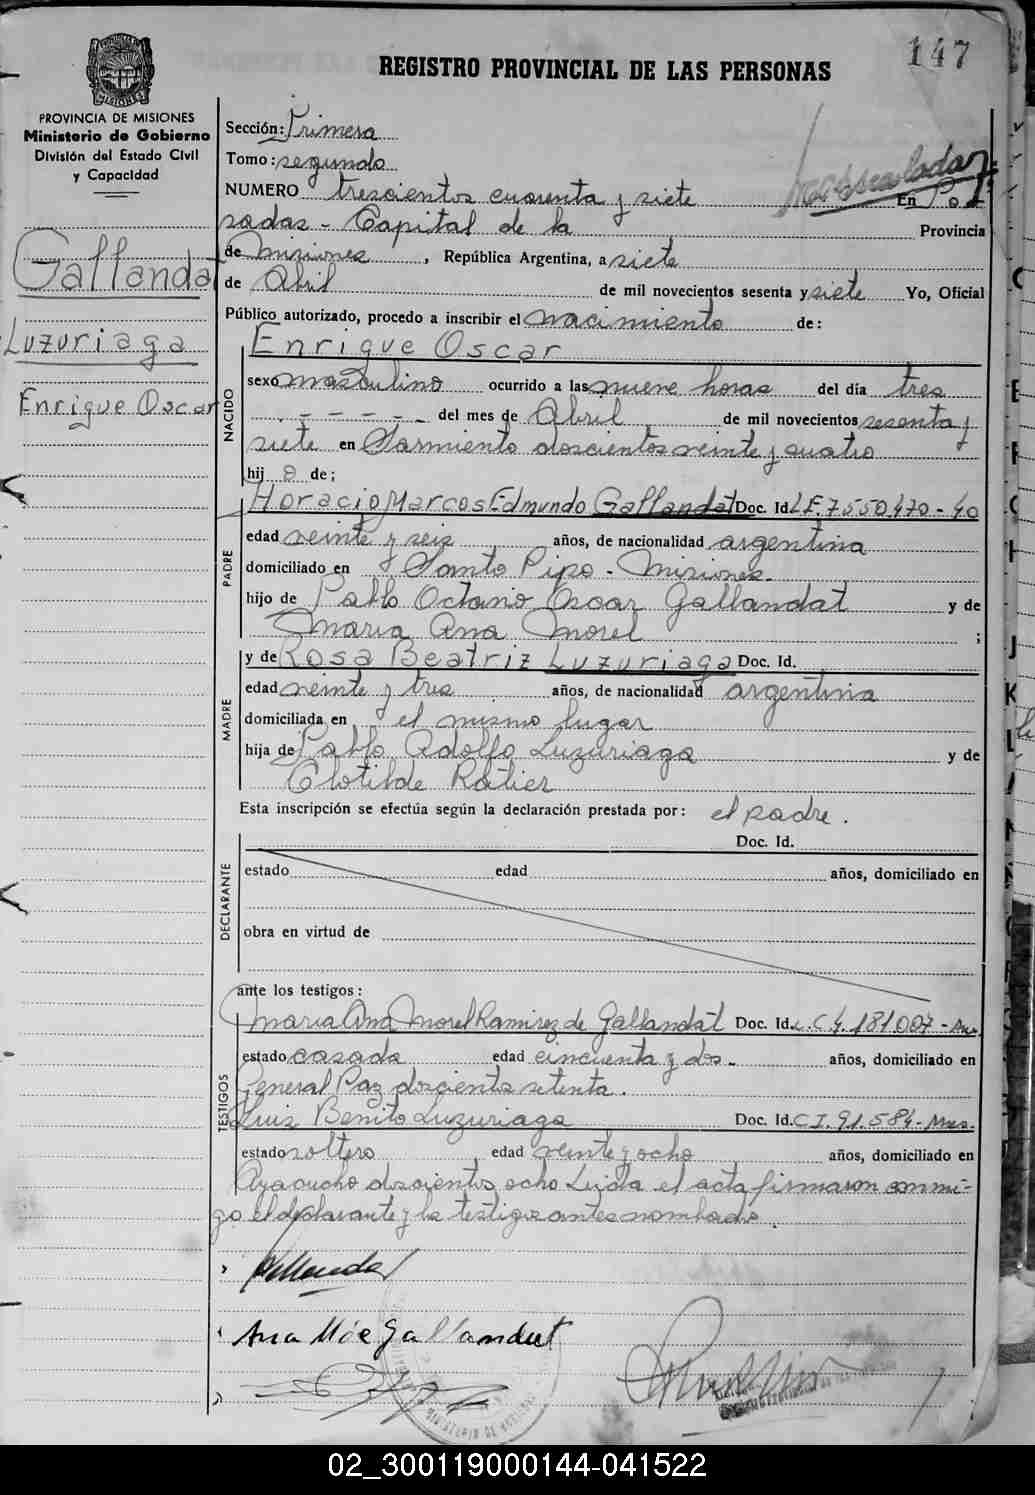 147
REGISTRO PROVINCIAL DE LAS PERSONAS
PROVINCIA DE MISIONES
Ministerio de Gobierno
División del Estado Civil
y Capacidad
Gallandat
Luzuriaga
Enrique Oscar
Sección: Primera
Tomo: segundo
NUMERO trescientos cuarenta y siete En Po
sadas - Capital de la Provincia
de Misiones, República Argentina, a siete
de Abril de mil novecientos sesenta y siete Yo, Oficial
Público autorizado, procedo a inscribir el nacimiento de:
NACIDO
Enrique Oscar
sexo masculino ocurrido a las nueve horas del día tres
- - - - del mes de Abril de mil novecientos sesenta y
siete en Sarmiento doscientos veinte y cuatro
hij o de;
PADRE
Horacio Marcos Edmundo Gallandat Doc. Id. L.E. 7550470-40
edad veinte y seis años, de nacionalidad argentina
domiciliado en Santo Pipo - Misiones.
hijo de Pablo Octavio Oscar Gallandat y de
Maria Ana Morel ;
MADRE
y de Rosa Beatriz Luzuriaga Doc. Id.
edad veinte y tres años, de nacionalidad argentina
domiciliada en el mismo lugar
hija de Pablo Adolfo Luzuriaga y de
Clotilde Ratier
Esta inscripción se efectúa según la declaración prestada por: el padre.
DECLARANTE
Doc. Id.
estado edad años, domiciliado en
obra en virtud de
ante los testigos:
TESTIGOS
Maria Ana Morel Ramirez de Gallandat Doc. Id. L.C 4.181.007-
estado casada edad cincuenta y dos - años, domiciliado en
General Paz doscientos setenta.
Luis Benito Luzuriaga Doc. Id. C I. 91.584 - Mnes.
estado soltero edad veinte y ocho años, domiciliado en
Ayacucho doscientos ocho Leida el acta firmaron conmi-
go el declarante y los testigos antes nombrados.
Gallandat
Ana M de Gallandat
MINISTERIO DE
02_300119000144-041522